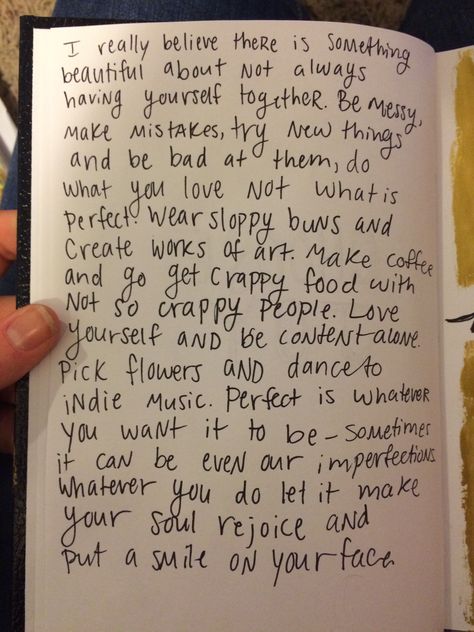 I really believe there is something
beautiful about not always
having yourself together. Be messy,
make mistakes, try new things
and be bad at them, do
what you love not what is
perfect. Wear sloppy buns and
create works of art. Make coffee
and go get crappy food with
not so crappy people. Love
yourself and be content alone.
Pick flowers and dance to
indie music. Perfect is whatever
you want it to be - sometimes
it can be even our imperfections.
Whatever you do let it make
your soul rejoice and
put a smile on your face.